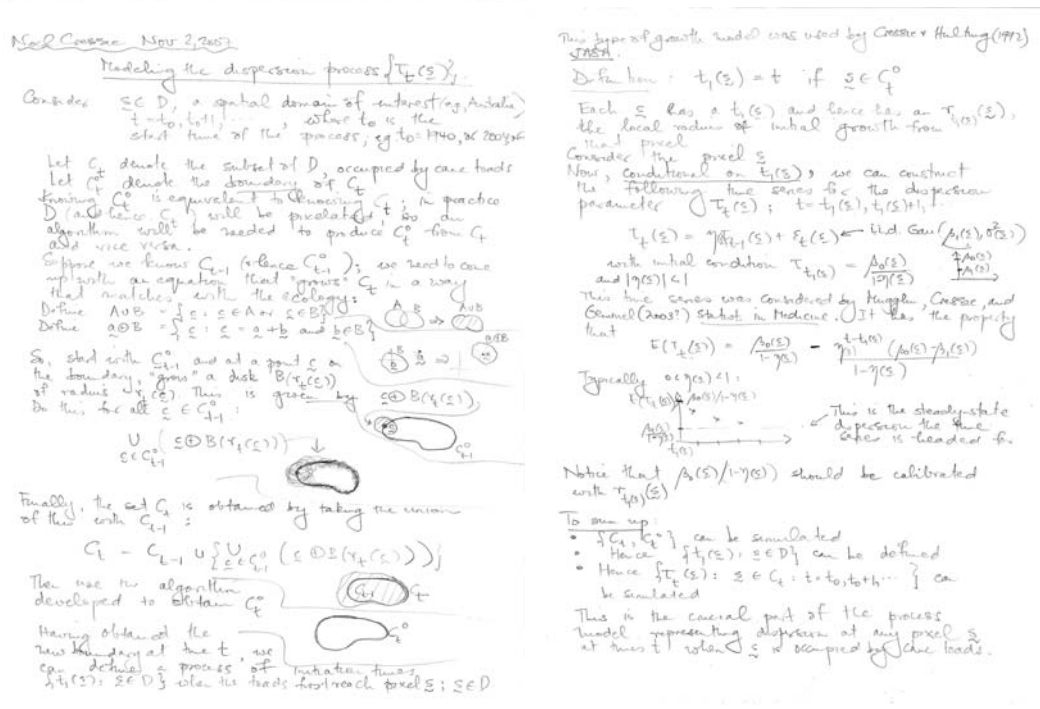 Noel Cressie Nov 2, 2007
Modeling the dispersion process {τ_t(s)};
Consider s ∈ D, a spatial domain of interest (eg, Australia)
t = t₀, t₀+1, ..., where t₀ is the
start time of the process; eg t₀ = 1940, or 2004,
Let C_t denote the subset of D, occupied by cane toads
Let C_t⁰ denote the boundary of C_t
Knowing C_t⁰ is equivalent to knowing C_t; in practice
D (and hence C_t) will be pixelated, so an
algorithm will be needed to produce C_t⁰ from C_t
and vice versa.
Suppose we know C_{t-1} (& hence C_{t-1}⁰); we need to come
up with an equation that "grows" C_t in a way
that matches with the ecology:
Define A∪B = {c : c ∈ A or c ∈ B}
A B ⇒ A∪B
Define a⊕B = {c : c = a+b and b∈B}
B a ⇒ a⊕B
So, start with C_{t-1}⁰ and at a point c on
the boundary, "grow" a disk B(r_t(c))
of radius r_t(c). This is given by c⊕B(r_t(c)),
Do this for all c ∈ C_{t-1}⁰ :
∪_{c∈C_{t-1}⁰} (c⊕B(r_t(c)))
C_{t-1}⁰
Finally, the set C_t is obtained by taking the union
of this with C_{t-1} :
C_t = C_{t-1} ∪ {∪_{c∈C_{t-1}⁰} (c⊕B(r_t(c)))}
Then use the algorithm
developed to obtain C_t⁰
C_{t-1} C_t
C_t⁰
Having obtained the
new boundary at time t, we
can define a process of initiation times
{t₁(s); s∈D} when the toads first reach pixel s; s∈D
This type of growth model was used by Cressie & Hulting (1992)
JASA.
Definition: t₁(s) = t if s ∈ C_t⁰
Each s has a t₁(s) and hence has an r_{t₁(s)}(s),
the local radius of initial growth from
that pixel
Consider the pixel s
Now, conditional on t₁(s), we can construct
the following time series for the dispersion
parameter τ_t(s); t = t₁(s), t₁(s)+1,
τ_t(s) = η(s)τ_{t-1}(s) + ε_t(s) ← i.i.d. Gau(β₁(s), σ²(s))
with initial condition τ_{t₁(s)} = β₀(s)/1-η(s)
and |η(s)| < 1
β₀(s)
β₁(s)
This time series was considered by Mugglin, Cressie, and
Gemmel (2003?) Statist in Medicine. It has the property
that
E(τ_t(s)) = β₀(s)/1-η(s) - η(s)^{t-t₁(s)} (β₀(s)-β₁(s))/1-η(s)
Typically 0<η(s)<1 :
E(τ_t(s)) β₀(s)/1-η(s)
t₁(s)
← This is the steady-state
dispersion the time
series is headed for
Notice that β₀(s)/1-η(s)) should be calibrated
with r_{t₁(s)}(s)
To sum up:
• {C_t, C_t⁰} can be simulated
• Hence {t₁(s): s∈D} can be defined
• Hence {τ_t(s): s ∈ C_t : t=t₀, t₀+1, ...} can
be simulated
This is the crucial part of the process
model, representing dispersion at any pixel s
at times t when s is occupied by cane toads.